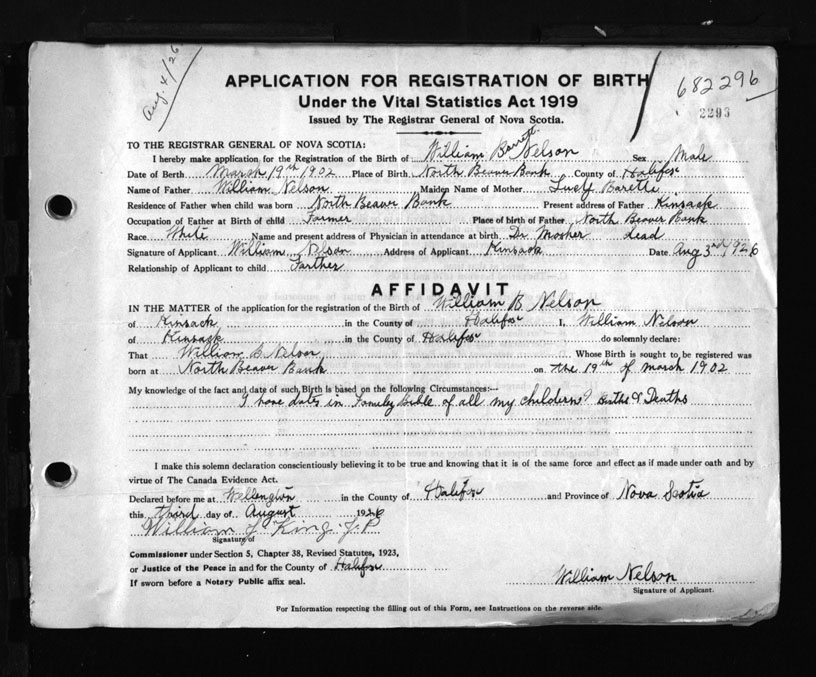 Aug. 4/26
APPLICATION FOR REGISTRATION OF BIRTH
682296
Under the Vital Statistics Act 1919
2293
Issued by The Registrar General of Nova Scotia.
TO THE REGISTRAR GENERAL OF NOVA SCOTIA:
I hereby make application for the Registration of the Birth of William Barrett Nelson Sex Male
Date of Birth March 19th 1902 Place of Birth North Beaver Bank County of Halifax
Name of Father William Nelson Maiden Name of Mother Lucy Barette
Residence of Father when child was born North Beaver Bank Present address of Father Kinsack
Occupation of Father at Birth of child Farmer Place of birth of Father North Beaver Bank
Race White Name and present address of Physician in attendance at birth Dr Mosher dead
Signature of Applicant William Nelson Address of Applicant Kinsack Date Aug 3rd 1926
Relationship of Applicant to child Farther
AFFIDAVIT
IN THE MATTER of the application for the registration of the Birth of William B Nelson
of Kinsack in the County of Halifax I, William Nelson
of Kinsack in the County of Halifax do solemnly declare:
That William B Nelson Whose Birth is sought to be registered was
born at North Beaver Bank on the 19th of march 1902
My knowledge of the fact and date of such Birth is based on the following Circumstances:—
I have dates in Family Bible of all my childern Births & Deaths
I make this solemn declaration conscientiously believing it to be true and knowing that it is of the same force and effect as if made under oath and by
virtue of The Canada Evidence Act.
Declared before me at Wellington in the County of Halifax and Province of Nova Scotia
this third day of August 1926
William J King J.P
Signature of
Commissioner under Section 5, Chapter 38, Revised Statutes, 1923,
or Justice of the Peace in and for the County of Halifax
If sworn before a Notary Public affix seal.
William Nelson
Signature of Applicant.
For Information respecting the filling out of this Form, see Instructions on the reverse side.